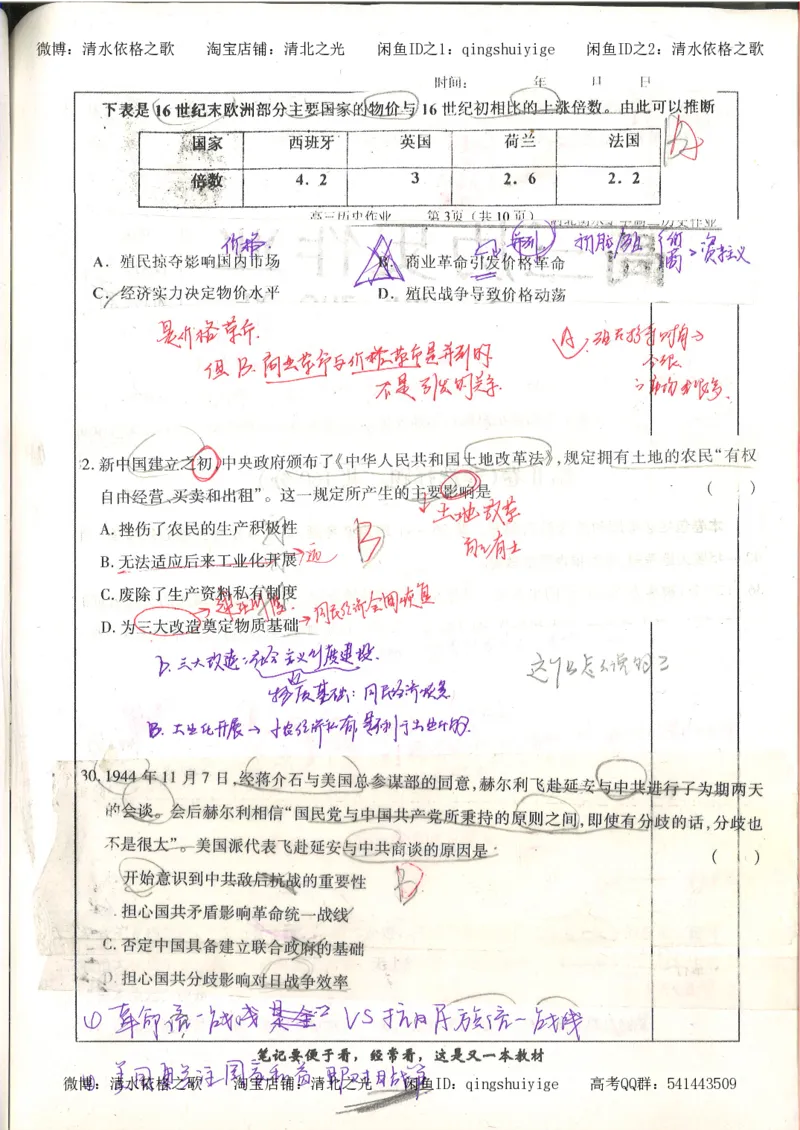 微博：清水依格之歌 淘宝店铺：清北之光 闲鱼ID之1：qingshuiyige 闲鱼ID之2：清水依格之歌
时间： 年 月 日
下表是16世纪末欧洲部分主要国家的物价与16世纪初相比的上涨倍数。由此可以推断
国家 西班牙 英国 荷兰 法国
倍数 4.2 3 2.6 2.2
高三历史作业 第3页（共10页）
价格. 并列
A．殖民掠夺影响国内市场 B．商业革命引发价格革命
资本主义
C．经济实力决定物价水平 D．殖民战争导致价格动荡
是价格革命.
但B.商业革命与价格革命是并列的
不是引发的关系.
2.新中国建立之初,中央政府颁布了《中华人民共和国土地改革法》,规定拥有土地的农民“有权
自由经营、买卖和出租”。这一规定所产生的主要影响是 （ ）
土地改革
A.挫伤了农民的生产积极性
B
B.无法适应后来工业化开展
C.废除了生产资料私有制度
D.为三大改造奠定物质基础
国民经济全面恢复
D.三大改造:社会主义制度建设.
物质基础：国民经济恢复
B.工业化开展→小农经济私有是不利于工业化的.
30.1944年11月7日,经蒋介石与美国总参谋部的同意,赫尔利飞赴延安与中共进行了为期两天
的会谈。会后赫尔利相信“国民党与中国共产党所秉持的原则之间,即使有分歧的话,分歧也
不是很大”。美国派代表飞赴延安与中共商谈的原因是 （ ）
开始意识到中共敌后抗战的重要性
D
担心国共矛盾影响革命统一战线
C.否定中国具备建立联合政府的基础
D.担心国共分歧影响对日战争效率
① 革命统一战线 VS 抗日民族统一战线
笔记要便于看，经常看，这是又一本教材
微博：清水依格之歌 淘宝店铺：清北之光 闲鱼ID：qingshuiyige 高考QQ群：541443509